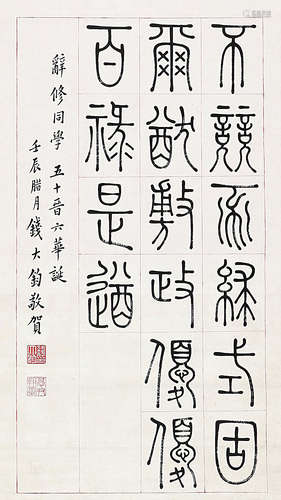 不競不絿式固
爾猷敷政優優
百祿是遒
辭修同學 五十晉六華誕
壬辰腊月錢大鈞敬賀